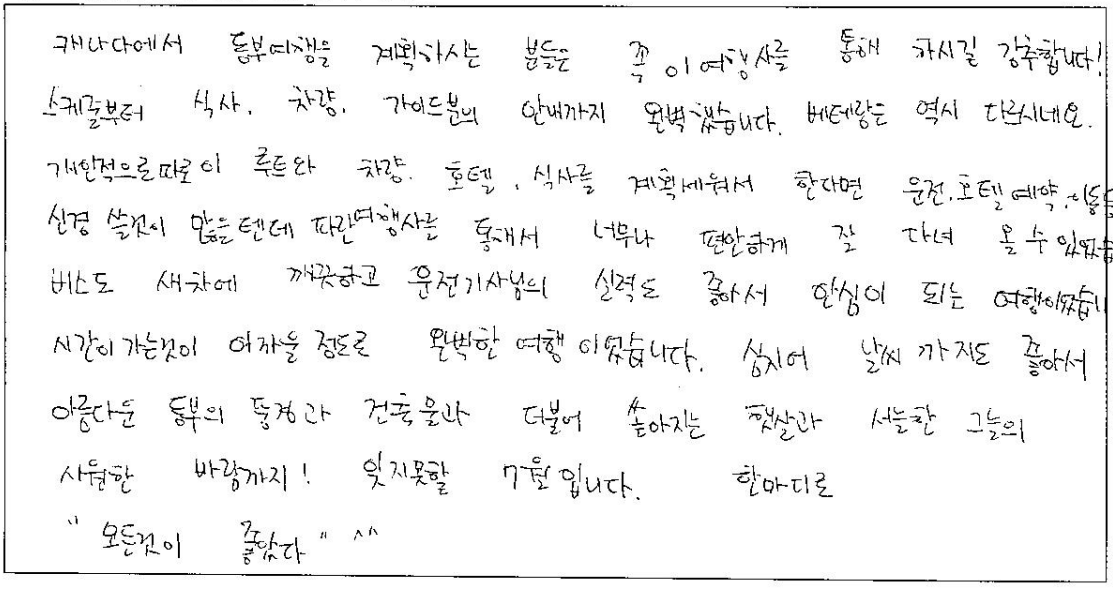 캐나다에서 동부여행을 계획하시는 분들은 꼭 이여행사를 통해 가시길 강추합니다!
스케줄부터 식사, 차량, 가이드분의 안내까지 완벽했습니다. 베테랑은 역시 다르시네요.
개인적으로따로이 루트와 차량, 호텔, 식사를 계획세워서 한다면 운전,호텔예약,이동등
신경 쓸것이 많을텐데 파란여행사를 통해서 너무나 편안하게 잘 다녀 올 수 있었습
버스도 새차에 깨끗하고 운전기사님의 실력도 좋아서 안심이 되는 여행이었습니
시간이가는것이 아까울정도로 완벽한 여행 이었습니다. 심지어 날씨 까지도 좋아서
아름다운 동부의 풍경과 건축물과 더불어 쏟아지는 햇살과 서늘한 그늘의
시원한 바람까지! 잊지못할 7월입니다. 한마디로
"모든것이 좋았다" ^^